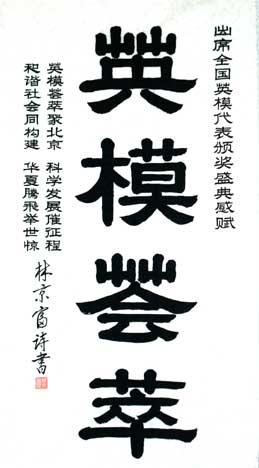 出席全国英模代表颁奖盛典感赋
英模荟萃
英模荟萃聚北京 科学发展催征程
和谐社会同构建 华夏腾飛举世惊
林京富诗書